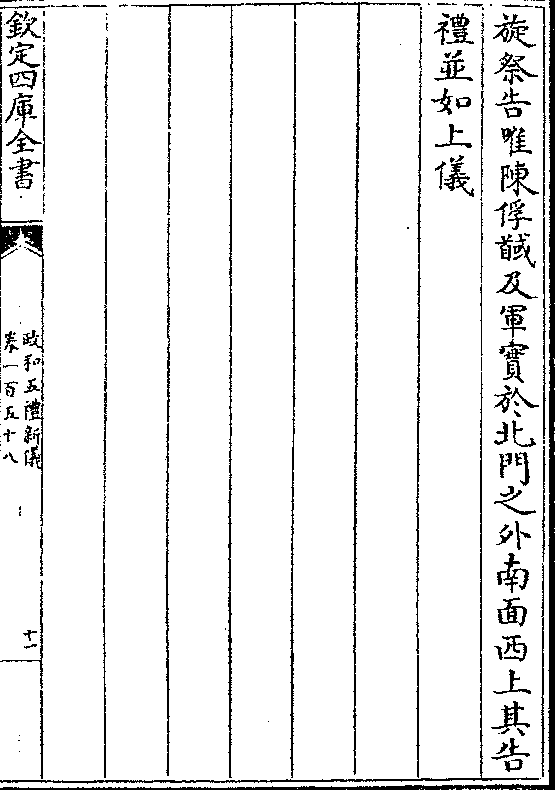 旋祭告唯陳俘馘及軍實於北門之外南面西上其告
禮並如上儀
欽定四庫全書
政和五禮新儀
卷一百五十八
十一